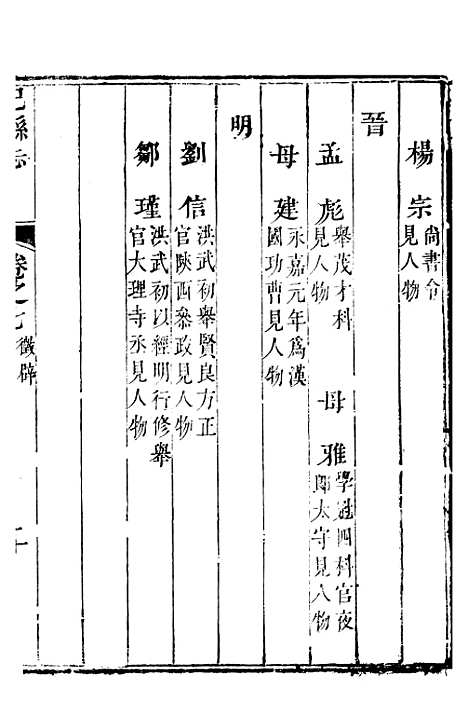 楊宗 尚書令見人物
晉
孟彪 舉茂才科見人物 毋雅 學冠四科官夜郎太守見人物
毋建 永嘉元年爲漢國功曹見人物
明
劉信 洪武初舉賢良方正官陝西叅政見人物
鄒瑾 洪武初以經明行修舉官大理寺丞見人物
巴縣志 卷之七 徵辟